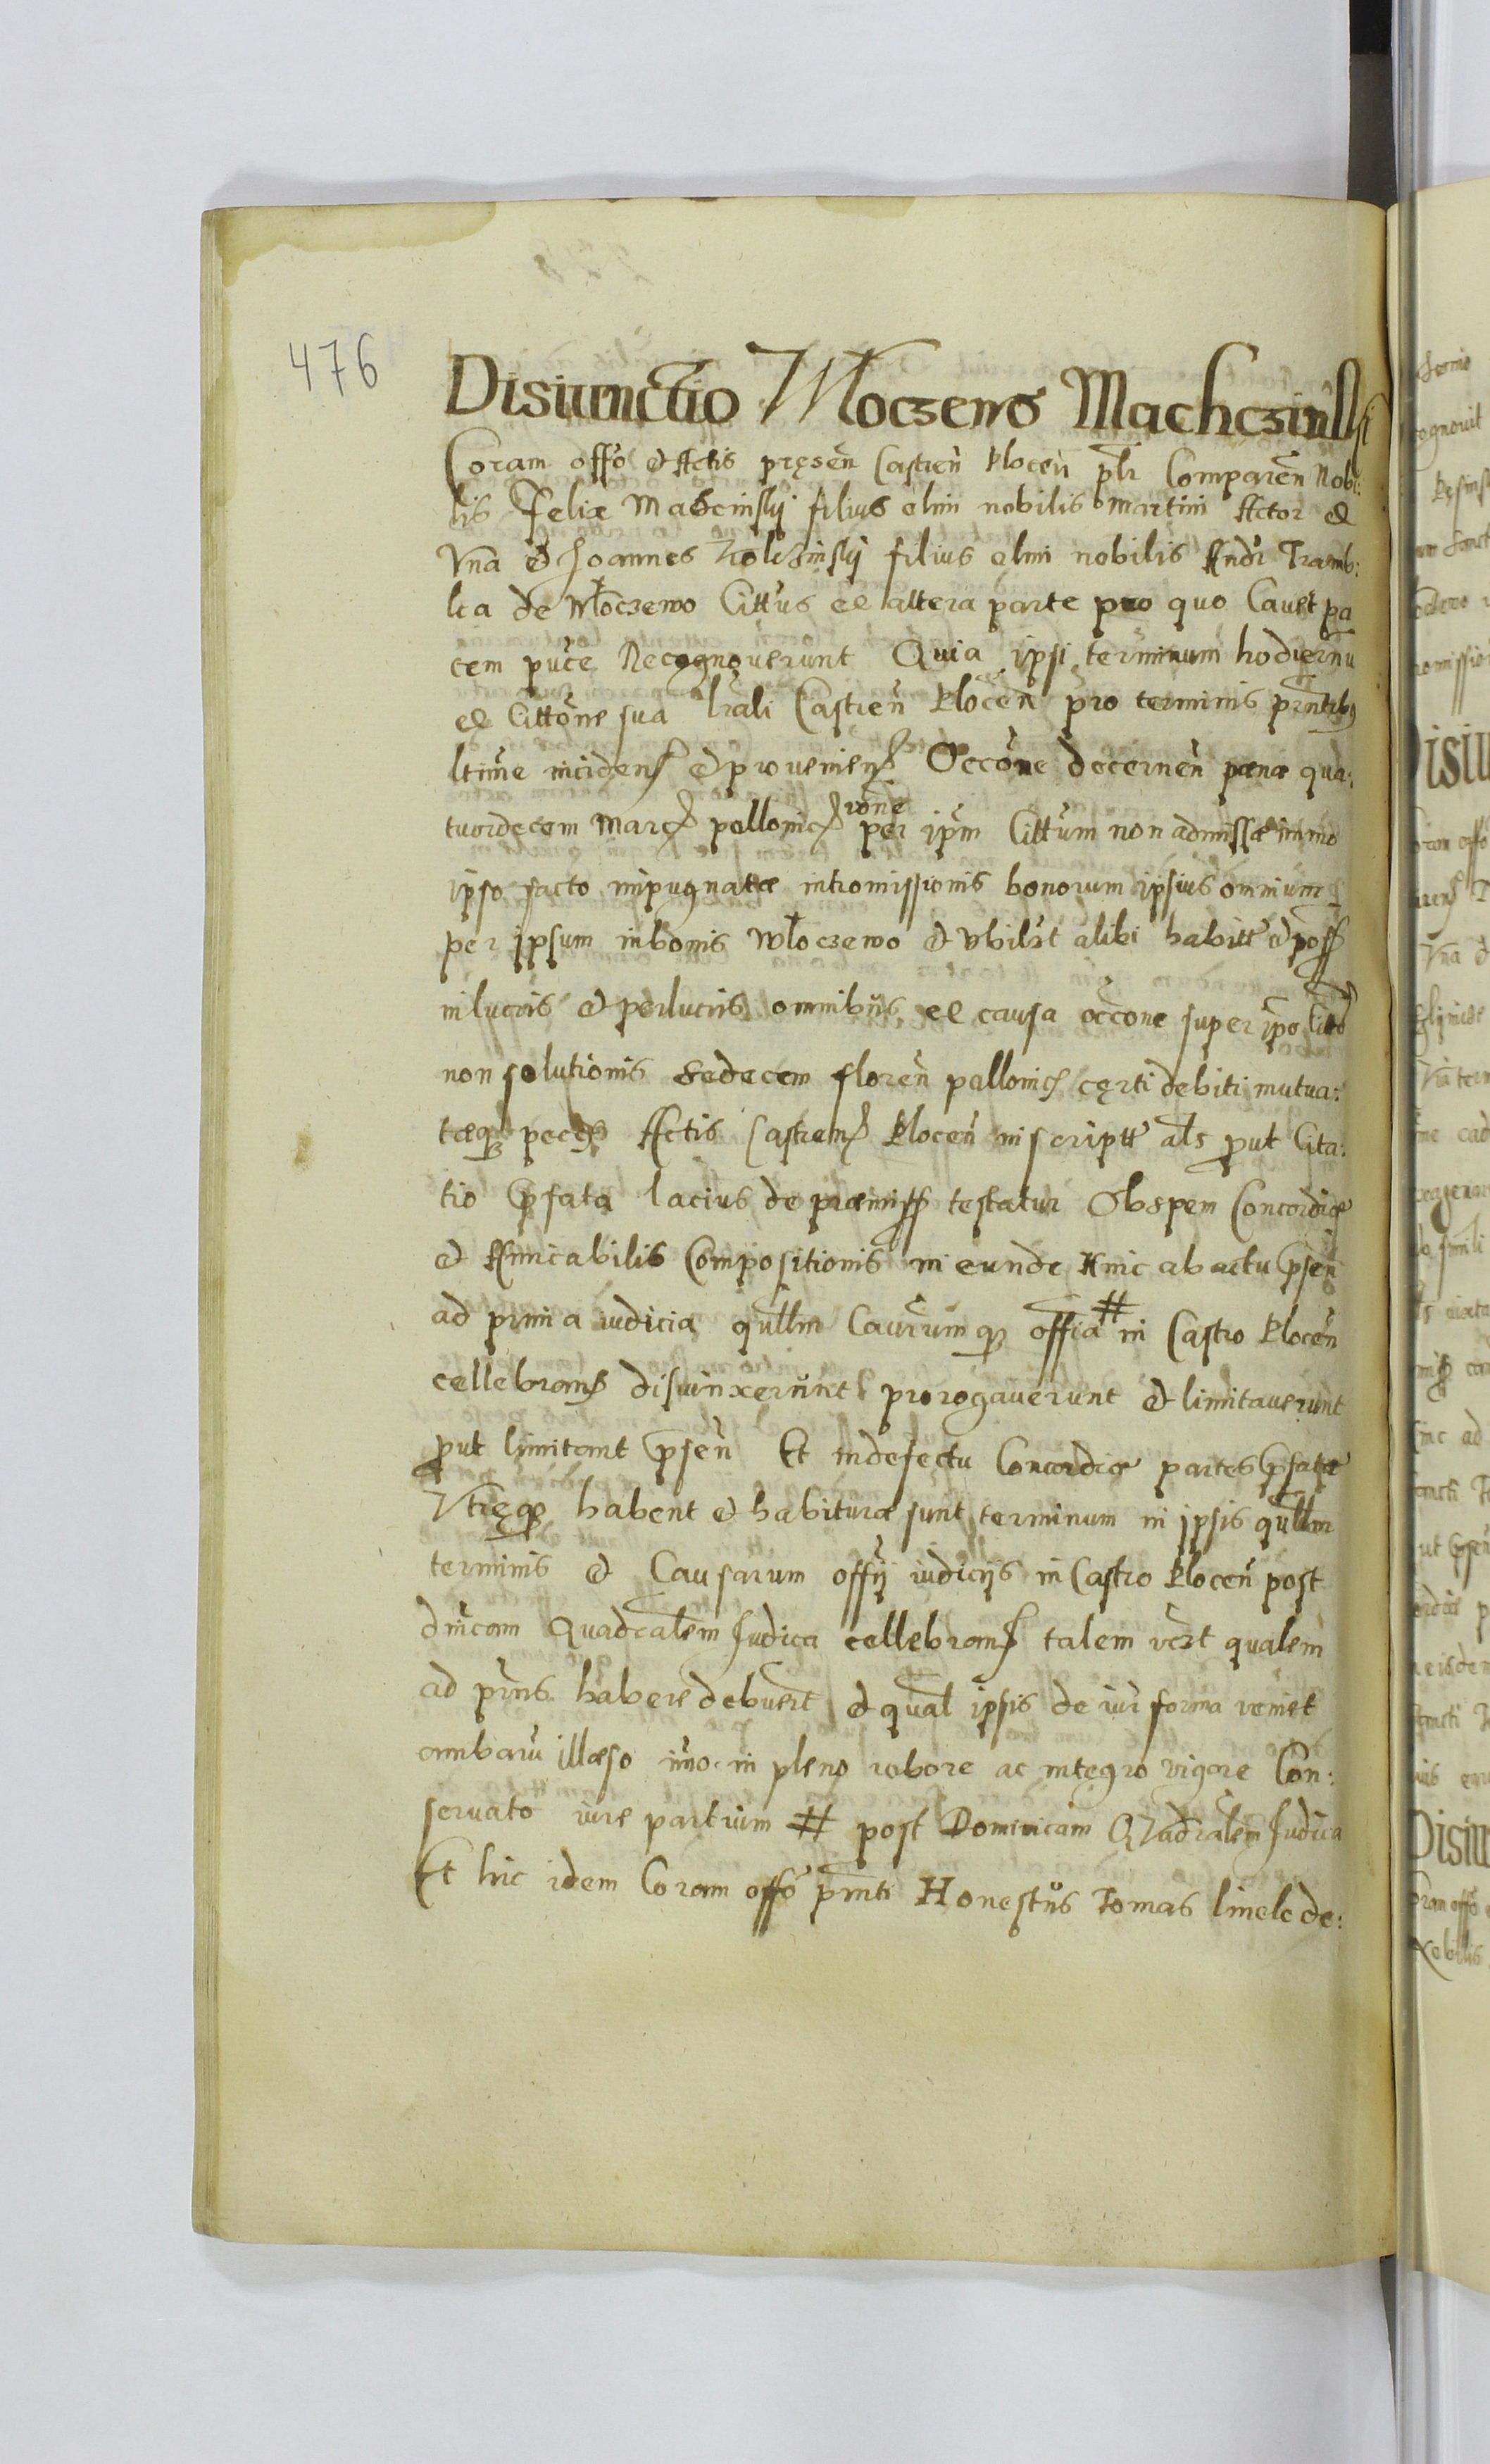 476
Disiunctio Włoczewo Machczinski
Coram offo et Actis pręsen Castren Plocen płr Comparen Nobi:
lis Felix Mascinskij filius olim nobilis Martini Actor ex
Vna et Joannes filius olim nobilis Andr Tramb:
lca de Włoczewo Cittus ex altera parte pro quo Cauet pa
cem puce Recognouerunt Quia ipsi terminum hodiernu
ex Cittone sua lrali Castren Plocen pro terminis prntibus
ltime inciden et provenien Occone decernen pænæ qua:
tuordecem Marc pollonic rone per ipm Cittum non admissæ immo
ipso facto impugnatæ intromissionis bonorum ipsius omnium
per ipsum in bonis Włoczewo et vbiuit alibi habitt et poss
in lucris et perlucris omnibus, ex causa occone super ipo Citto
non solutionis sedecem floren pollonic cęrti debiti mutua:
tæq pec Actis Castren Plocen inscriptt als put Cita:
tio psata lacius de præmiss testatur Ob spem Concordiæ
et Amicabilis Compositionis ineunde Hinc ab actu psen
ad prima iudicia qullm Caurum q offia # in Castro Plocen
cellebran disiunxerunt prorogauerunt et limitauerunt
put limitant psen Et in defectu Concordiæ partes psatæ
Vtręq habent et habituræ sunt terminum in ipsis qullm
terminis et Causarum offij iudicijs in Castro Plocen post
dnicam Quadralem Judica cellebran talem vert qualem
ad prns habere debuert et qual ipsis de iur forma veniet
ambaru illæso imo in pleno robore ac integro vigore Con:
seruato iure partium # post Dominicam Qvadralem Judica
Et hic idem Coram offo prnti Honestus Tomas linek de: